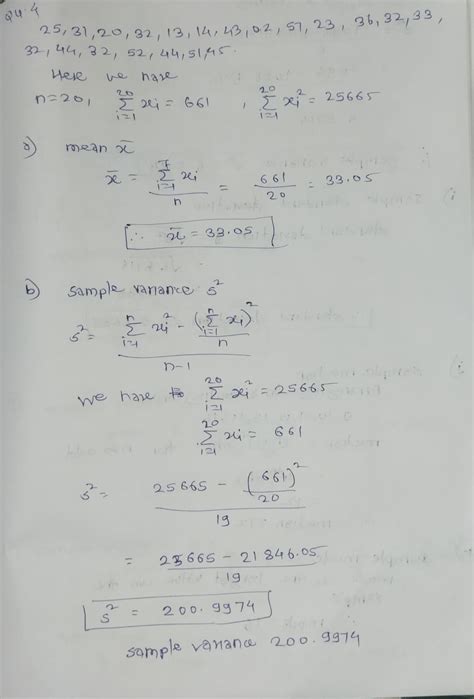 QU.4
25, 31, 20, 32, 13, 14, 43, 02, 57, 23, 36, 32, 33,
32, 44, 32, 52, 44, 51, 45.
Here we have
n=20, 20 Σ i=1 xi = 661 , 20 Σ i=1 xi² = 25665
a) mean x̄
x̄ = Σ i=1 xi / n = 661 / 20 = 33.05
∴ x̄ = 33.05
b) sample variance s²
s² = n Σ i=1 xi² - (n Σ i=1 xi)² / n
n-1
we have 20 Σ i=1 xi² = 25665
20 Σ i=1 xi = 661
s² = 25665 - (661)² / 20
19
= 25665 - 21846.05
19
s² = 200.9974
sample variance 200.9974